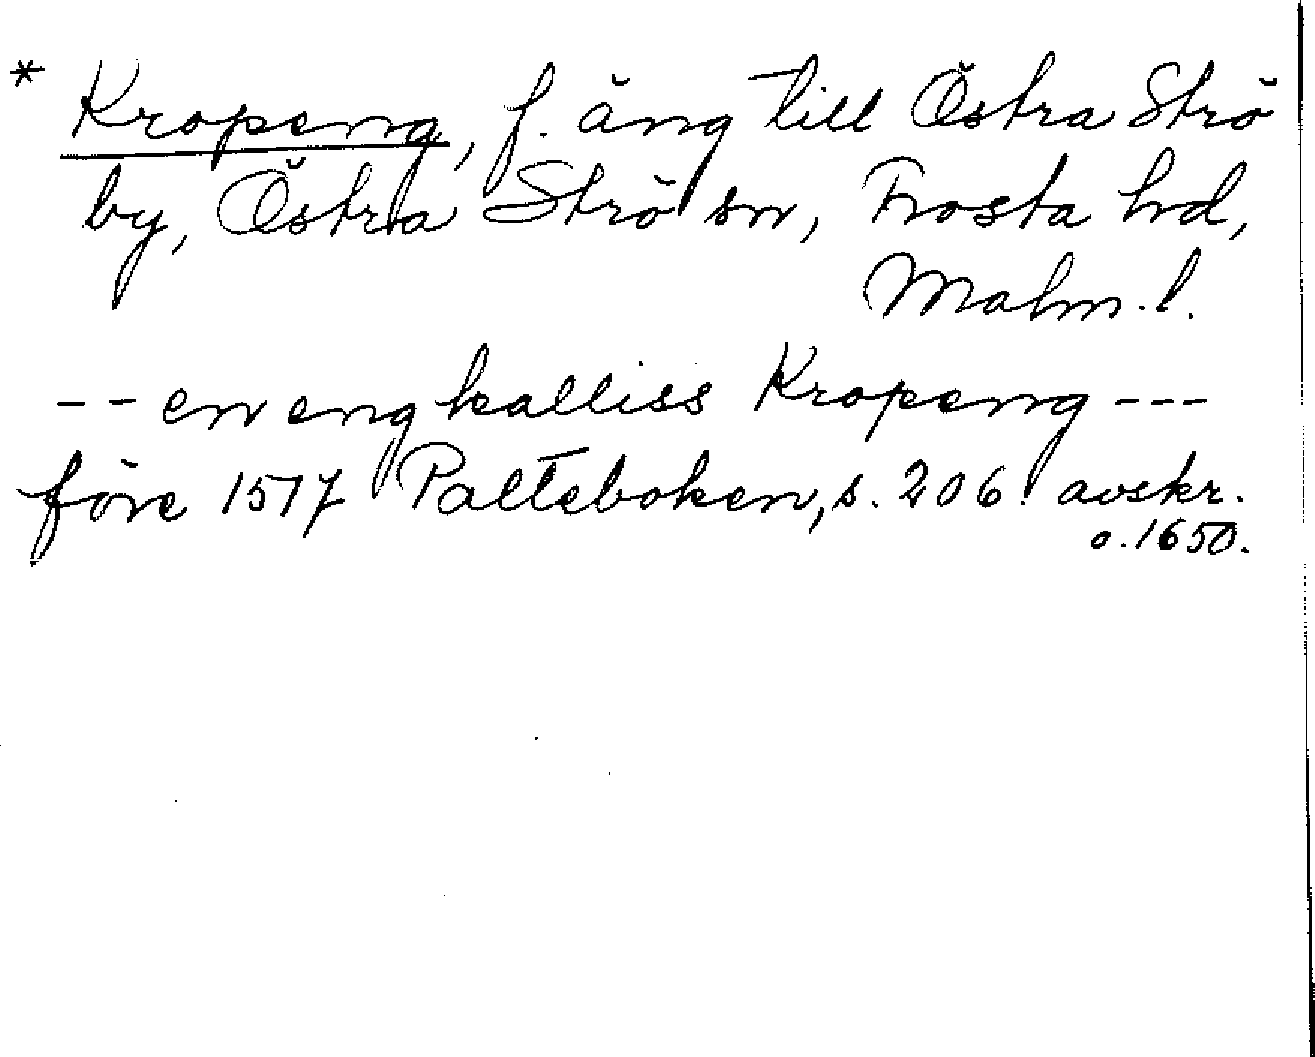 * Kropeng, f. äng till Östra Strö
by, Östra Strö sn, Frosta hd,
Malm. l.
-- en eng kalliss Kropeng ---
före 1517 Palteboken, s. 206 avskr.
o. 1650.